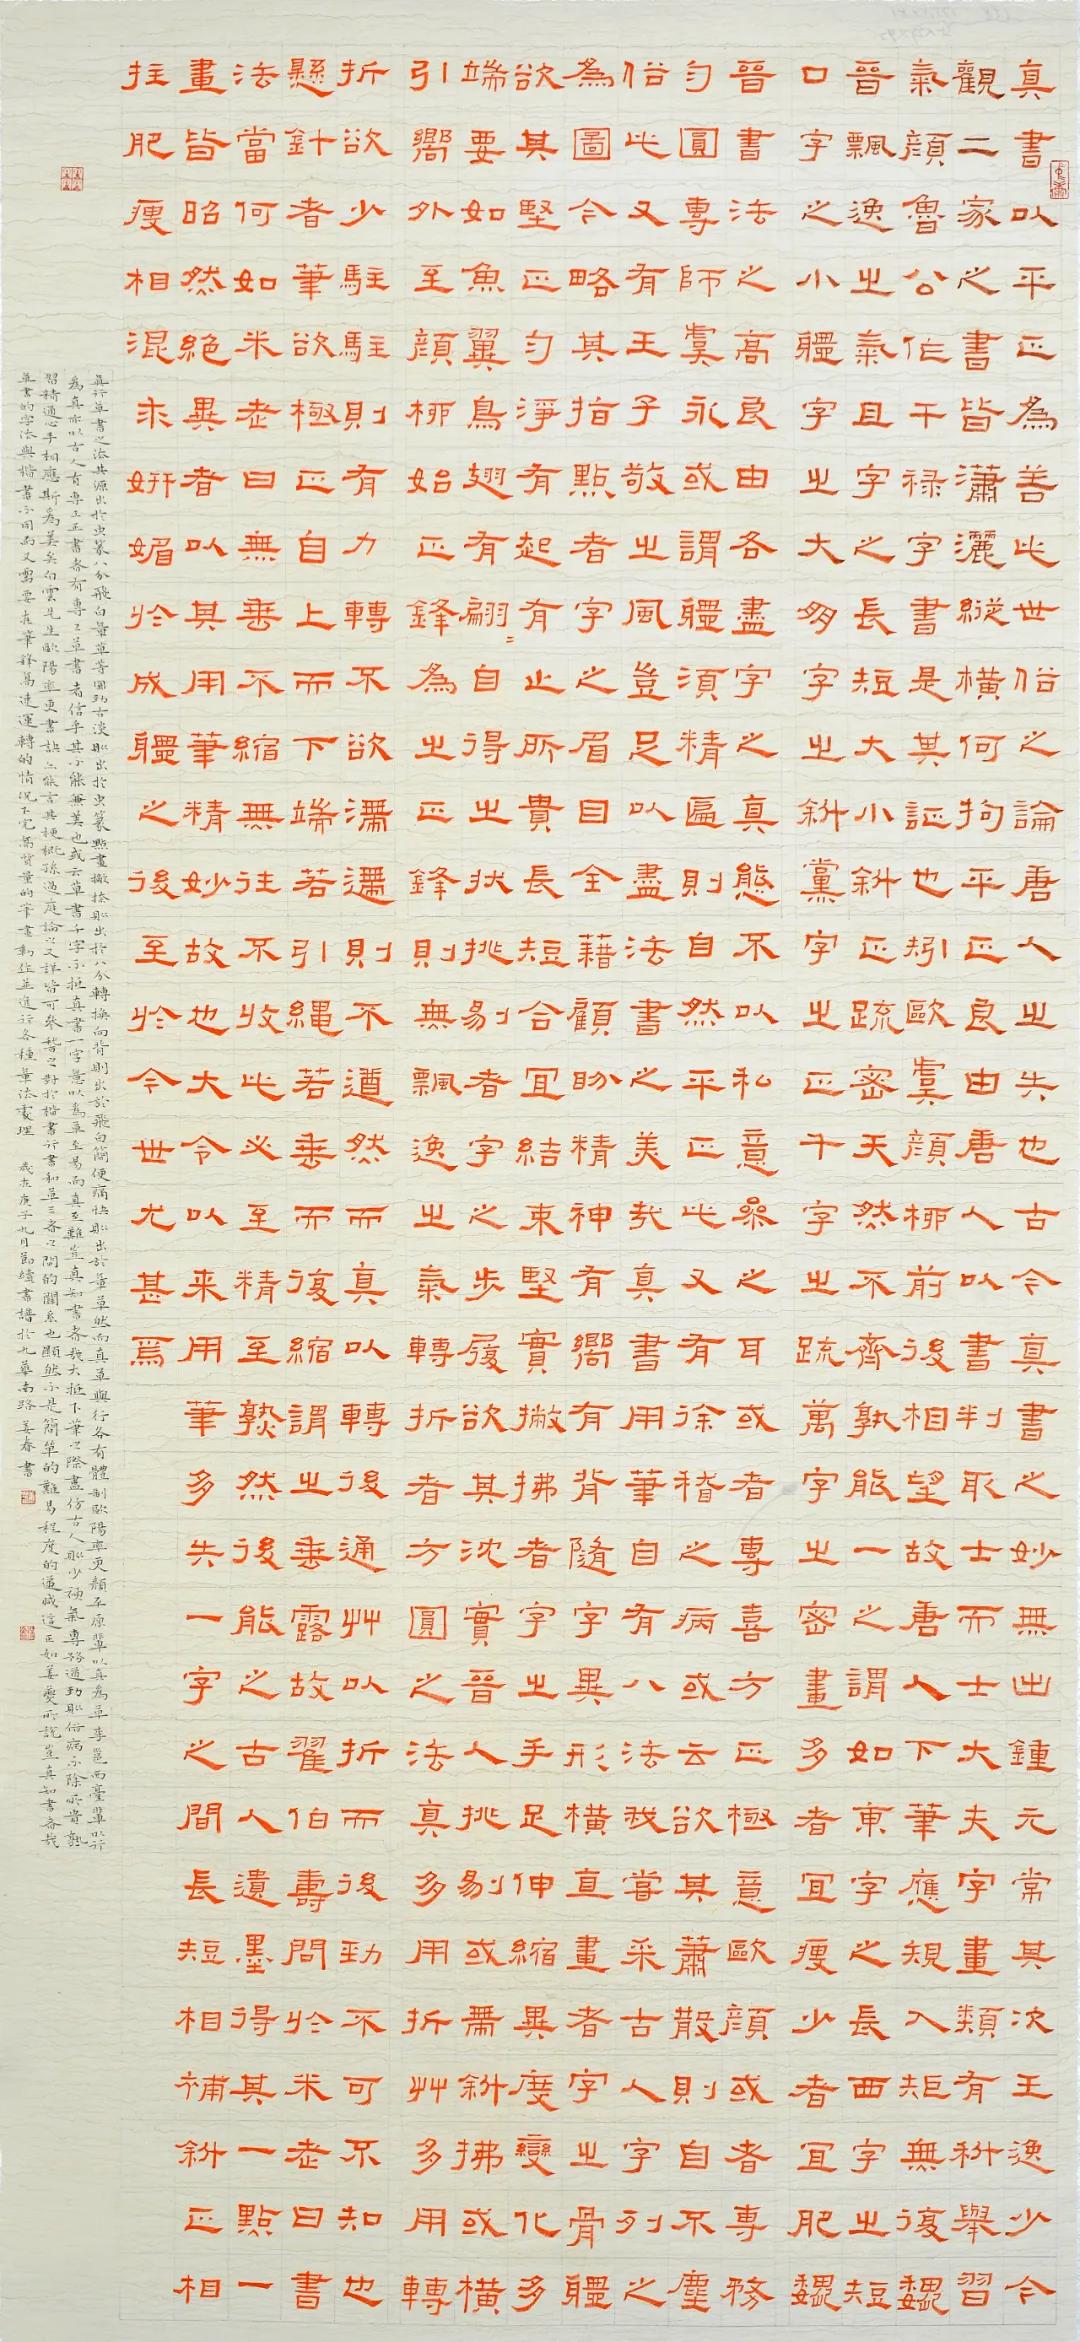 真書以平正為善此世俗之論唐人之失也古今真書之妙無出鍾元常其次王逸少今
觀二家之書皆瀟灑縱橫何拘平正良由唐人以書判取士而士大夫字畫類有科舉習
氣顏魯公作干祿字書是其証也矧歐虞顏柳前後相望故唐人下筆應規入矩無復魏
晉飄逸之氣且字之長短大小斜正疏密天然不齊孰能一之謂如東字之長西字之短
口字之小疆字之大朋字之斜黨字之正千字之疏萬字之密畫多者宜瘦少者宜肥魏
晉書法之高良由各盡字之真態不以私意參之耳或者專喜方正極意歐顏或者不專務
勻圓專師虞永或謂軆須精匾則自然平正此又有徐稽之病或云欲其蕭散則自不塵
俗此又有王子敬之風豈足以盡法書之美哉真書用筆自有八法我嘗采古人字列之
為圖今略其指點者字之眉目全藉顧盼精神有嚮有背隨字異形橫直畫者字之骨軆
欲其堅正勻淨有起有止所貴長短合宜結束堅實撇拂者字之手足伸縮異度變化多
端要如魚翼鳥翅有翩〻自得之狀挑剔者字之步履欲其沈實晉人挑剔或帶斜拂或橫
引嚮外至顏柳始正鋒為之正鋒則無飄逸之氣轉折者方圓之法真多用折艸多用轉
折欲少駐駐則有力轉不欲濡邇則不遒然而真以轉後通艸以折而後勁不可不知也
懸針者筆欲極正自上而下端若引繩若垂而復縮謂之垂露故翟伯壽問於米老曰書
法當何如米老曰無垂不縮無往不收此必至精至熟然後能之古人遺墨得其一點一
畫皆昭然絕異者以其用筆精妙故也大令以来用筆多失一字之間長短相補斜正相
拄肥瘦相混求妍媚於成軆之後至於今世尤甚焉
真行草書之法其源出於虫篆八分飛白章草等圓勁古淡則出於虫篆點畫撇捺則出於八分轉換向背則出於飛白簡便痛快則出於章草然而真草與行各有體制歐陽率更顏平原輩以真為草李邕西臺輩以行
為真亦以古人有專工正書者有專工草書者信乎其不能兼美也或云草書千字不抵真書一字意以為草至易而真至難豈真知書者哉大抵下筆之際盡仿古人則少神氣專務遒勁則俗病不除所貴熟
習精通心手相應斯為美矣白雲先生歐陽率更書訣亦能言其梗概孫過庭論之又詳皆可參稽之對於楷書行書和草三者之間的關系也顯然不是簡單的難易程度的遞減這正如姜夔所說豈真知書者哉
草書的字法與楷書不同而又需要在筆鋒高速運轉的情況下完高質量的筆畫動作並進行各種章法處理 歲在庚子九月節續書譜於九華南路 姜春書